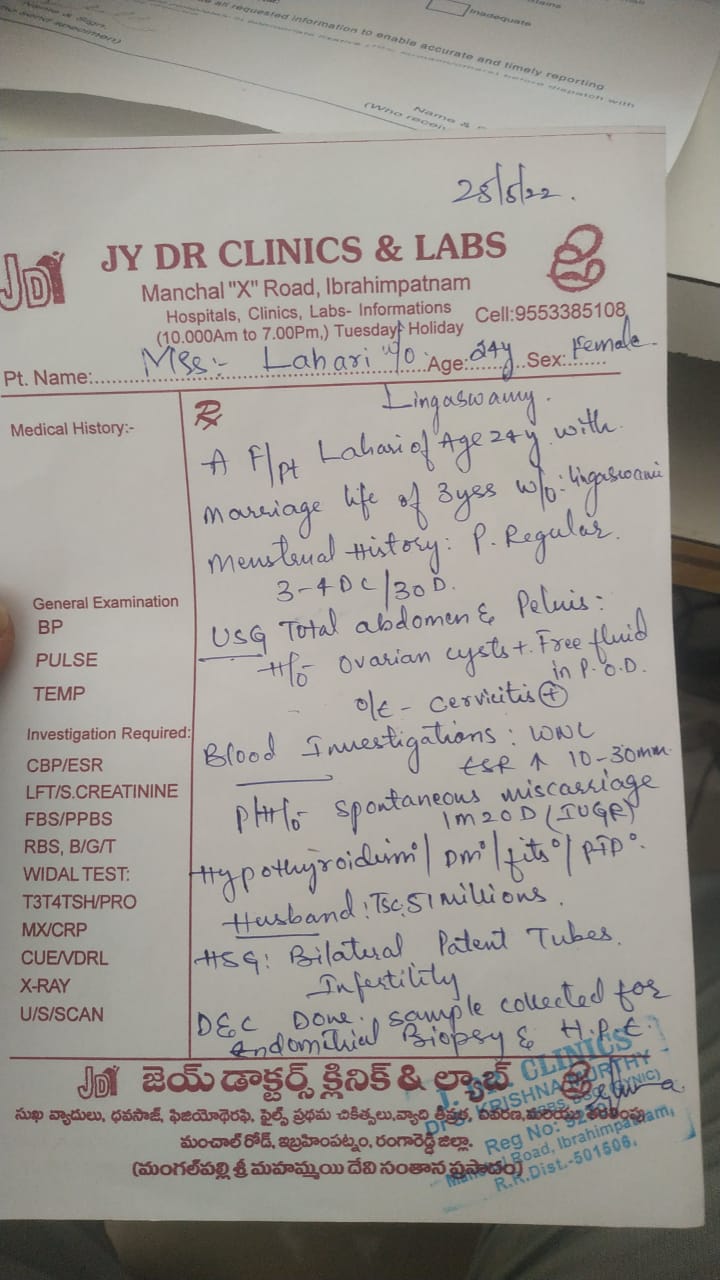 Inadequate
all requested information to enable accurate and timely reporting
before dispatch with
Name & Sign.
send specimen)
Name &
(Who recei
28/5/22.
JDI
JY DR CLINICS & LABS
Manchal "X" Road, Ibrahimpatnam
Hospitals, Clinics, Labs- Informations
Cell:9553385108
(10.000Am to 7.00Pm,) Tuesday Holiday
Pt. Name: Mrs:- Lahari w/o. Age: 24y Sex: Female.
Lingaswamy.
Medical History:-
A F/pt Lahari of Age 24y with
marriage life of 3yrs w/o: lingaswami
Menstrual History: P. Regular.
3-4DC/30D.
General Examination
BP
PULSE
TEMP
USG Total abdomen & Pelvis:
H/o ovarian cysts +. Free fluid
in P.O.D.
o/e - Cervicitis +
Investigation Required:
CBP/ESR
LFT/S.CREATININE
FBS/PPBS
RBS, B/G/T
WIDAL TEST:
T3T4TSH/PRO
MX/CRP
CUE/VDRL
X-RAY
U/S/SCAN
Blood Investigations: WNL
ESR ↑ 10-30mm.
P/H/o spontaneous miscarriage
1M20D (IUGR)
Hypothyroidism°/ DM°/fits°/ PTP°.
Husband: TSC: 51 millions.
HSG: Bilateral Patent Tubes.
Infertility
D&C Done. sample collected for
Endomitrial Biopsy & H.P.E.
JDI జెయ్ డాక్టర్స్ క్లినిక్ & ల్యాబ్
మంచాల్ రోడ్, ఇబ్రహీంపట్నం, రంగారెడ్డి జిల్లా.
(మంగల్‌పల్లి శ్రీ మహమ్మయి దేవి సంతాన ప్రసాదం)
CLINICS
KRISHNA MURTHY
Reg No:
Road, Ibrahimpatnam,
R.R.Dist.-501506.